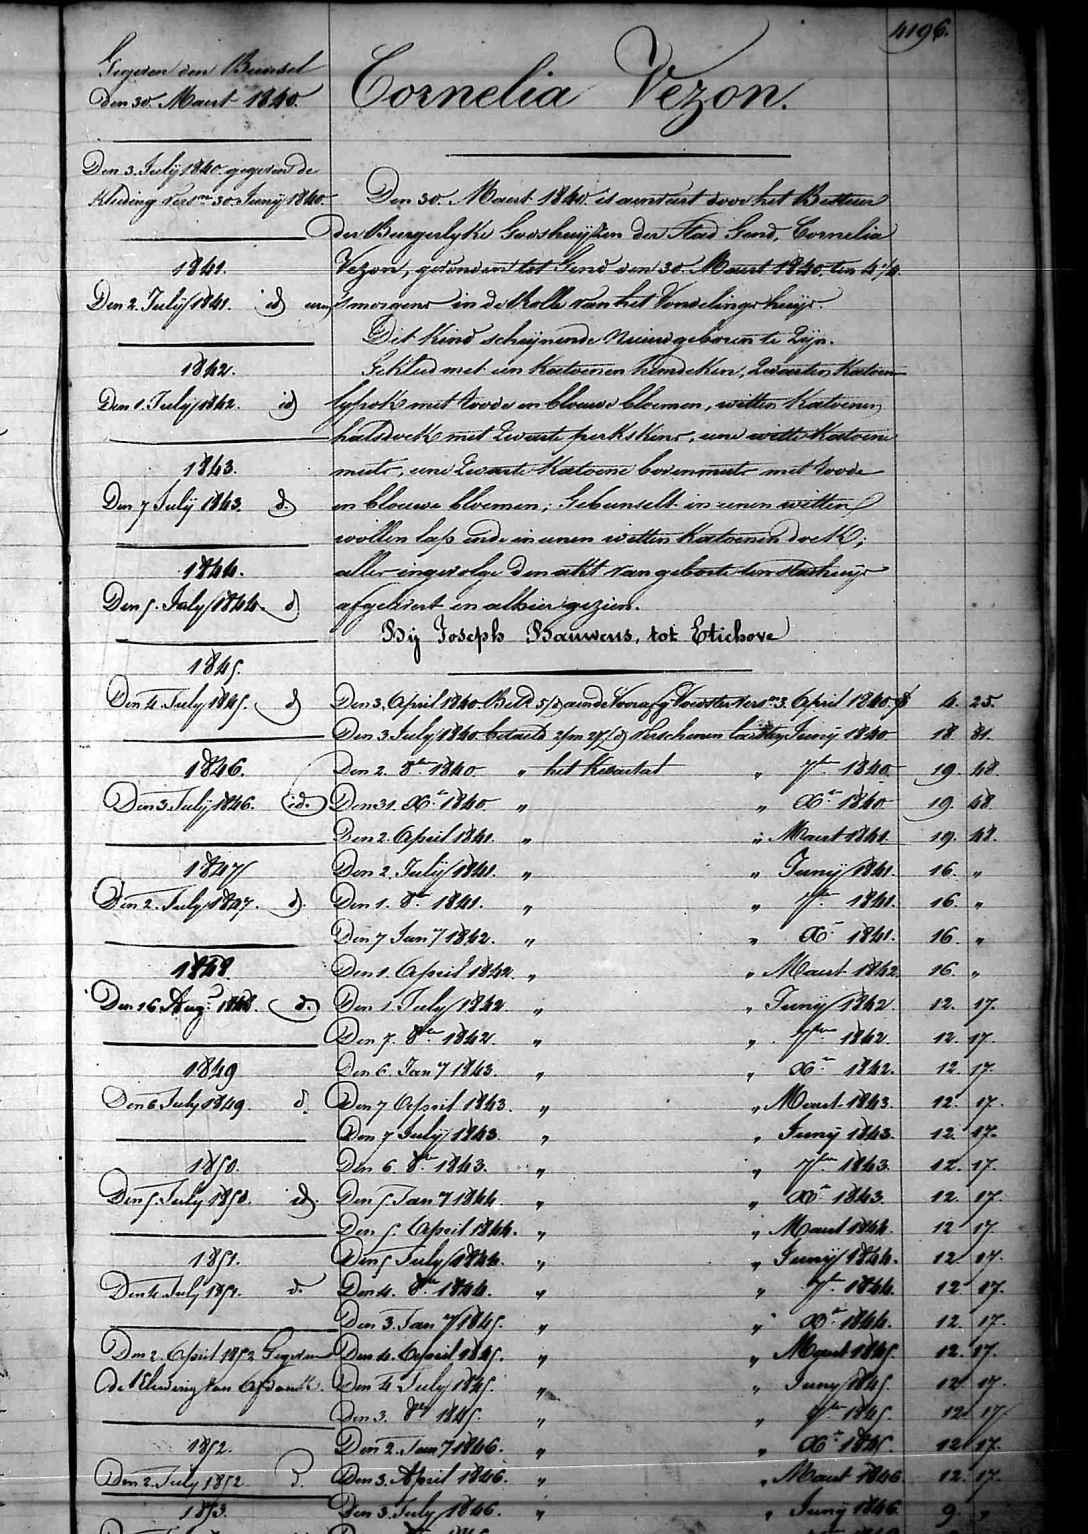 4196.
Cornelia Vezon.
Gegeven den Bundsel
den 30. Maert 1840.
Den 3. July 1840. gegeven de
Kleding vers.en 30. Junij 1840.
1841.
Den 2. July 1841. id
1842.
Den 1. July 1842. id
1843.
Den 7 July 1843. d.
1844.
Den 5. July 1844. d
1845.
Den 4. July 1845. d
1846.
Den 3. July 1846. id.
1847
Den 2. July 1847. d.
1848.
Den 16 Aug. 1848. d.
1849
Den 6 July 1849. d.
1850.
Den 5. July 1850. id.
1851.
Den 4. July 1851. d.
Den 2. April 1852 Gegeven
de Kleedering van
1852.
Den 2. July 1852 d.
1853.
Den 30. Maert 1840. is aenvaert door het Bestier
der Burgerlyke Godshuijzen der stad Gend, Cornelia
Vezon, gevonden tot Gend den 30. Maert 1840, ten 4 1/4
smorgens in de Rolle van het Vondelingshuijs.
Dit Kind scheijnende nieuwgeboren te Zijn.
Gekleed met een Katoenen hemdeken, Zwarten Katoen
lyfrok met roode en blouwe bloemen, witten Katoenen
halsdoek met Zwarte perkskens, eene witte Katoene
muts, eene Zwarte Katoene bovenmuts met roode
en blouwe bloemen; Gebunselt in eenen witten
wollen lap ende in eenen witten Katoenen doek;
alles ingevolge den akt van geborte ten stadhuijs
afgelevert en alhier gezien.
Bij Joseph Bauwens, tot Etichove
Den 3. April 1840. aen de Voedster vers.en 3. April 1840. 4. 25.
Den 3 July 1840. betaeld verschenen Junij 1840 18 81.
Den 2. 8.er 1840 " het Kwartael " 7.er 1840 19. 48.
Den 31. X.er 1840 " " X.er 1840 19. 48.
Den 2. April 1841. " " Maert 1841. 19. 48.
Den 2. July 1841. " " Junij 1841. 16. "
Den 1. 8.er 1841. " " 7.er 1841. 16. "
Den 7 Jan.y 1842. " " X.er 1841. 16. "
Den 1. April 1842. " " Maert 1842. 16. "
Den 1. July 1842. " " Junij 1842. 12. 17.
Den 7. 8.er 1842. " " 7.er 1842. 12. 17.
Den 6. Jan.y 1843. " " X.er 1842. 12. 17.
Den 7 April 1843. " " Maert 1843. 12. 17.
Den 7 July 1843. " " Junij 1843. 12. 17.
Den 6. 8.er 1843. " " 7.er 1843. 12. 17.
Den 5. Jan.y 1844. " " X.er 1843. 12. 17.
Den 5. April 1844. " " Maert 1844. 12 17
Den 5 July 1844. " " Junij 1844. 12 17.
Den 4. 8.er 1844. " " 7.er 1844. 12 17.
Den 3. Jan.y 1845. " " X.er 1844. 12. 17.
Den 4. April 1845. " " Maert 1845. 12. 17.
Den 4. July 1845. " " Juny 1845. 12 17.
Den 3. 8.er 1845. " " 7.er 1845. 12 17
Den 2. Jan.y 1846. " " X.er 1845. 12 17.
Den 3. April 1846. " " Maert 1846. 12. 17.
Den 3. July 1846. " " Junij 1846. 9. "